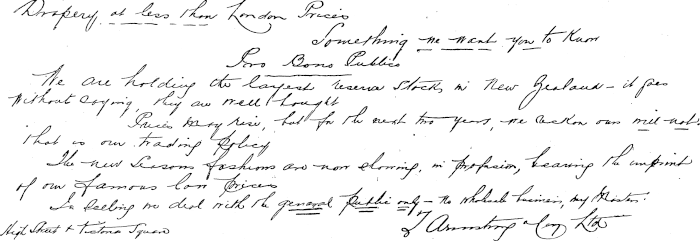 Drapery at less than London Prices
Something we want you to Know
Pro Bono Publico
We are holding the largest reserve stocks in New Zealand - it goes
without saying, they are well bought
Prices may rise, but for the next two years, we reckon ours will not:
that is our trading policy
The new Seasons fashions are now showing, in profusion, bearing the imprint
of our famous low prices
In selling we deal with the general public only - no wholesale business, my Masters.
Armstrong & Coy Ltd
High Street & Victoria Square